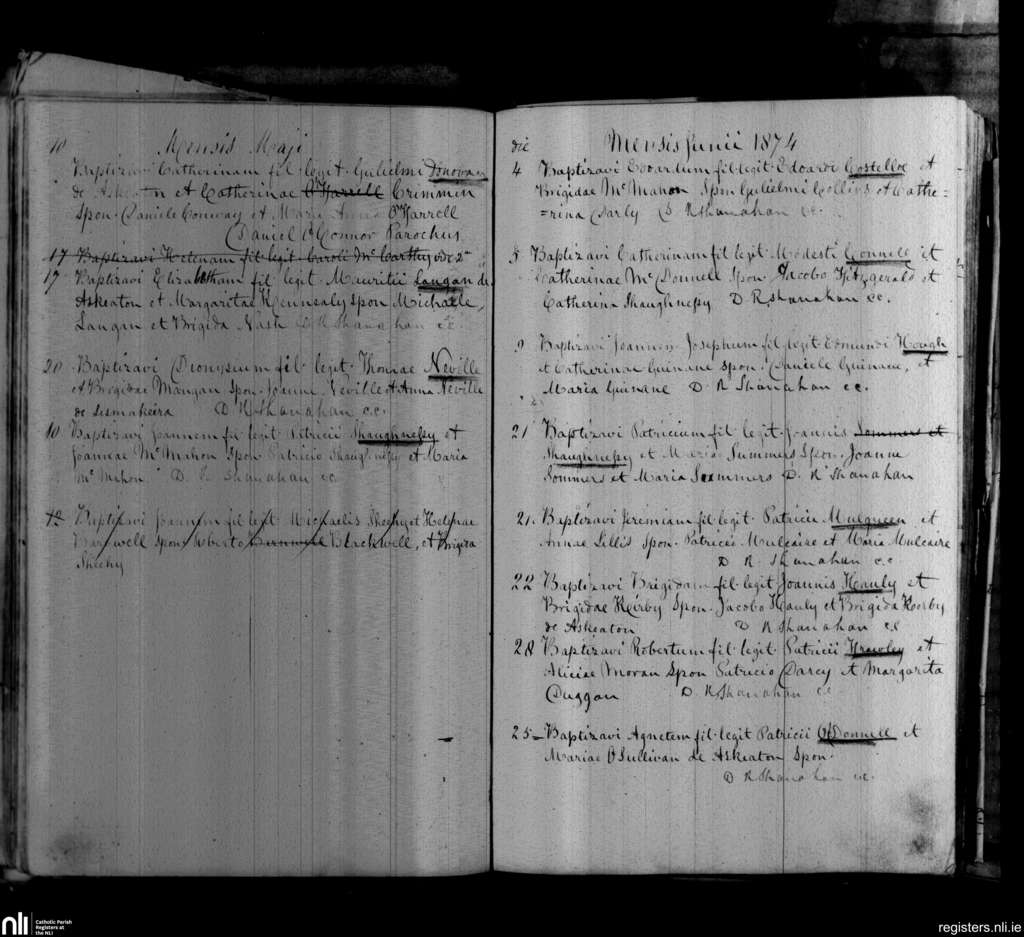 10 Mensis Maji
Baptizavi Catherinam fil legit Gulielmi Donovan
de Askeaton et Catherinae O'Farrell Cremmen
Spon. Daniele Conway et Maria Anna O'Farrell
Daniel O'Connor Parochus
17 Baptizavi Helenam fil legit. Caroli McCarthy
17 Baptizavi Elizabetham fil legit Mauritii Langan de
Askeaton et Margaritae Kennealy Spon Michaele,
Langan et Brigida Nash D R Shanahan cc
20 Baptizavi Dionysium fil. legit. Thomae Neville
et Brigidae Mangan Spon. Joanne Neville et Anna Neville
de Lismakeira D R Shanahan c.c.
10 Baptizavi Joannem fil legit Patricii Shaughnessy et
Joannae McMahon Spon Patricio Shaughnessy et Maria
McMahon. D. R Shanahan cc
12 Baptizavi Joannem fil legit Michaelis Sheehy et Helenae
Barnwell Spon. Roberto Barnwell Blackwell, et Brigita
Sheehy
die Mensis Junii 1874
4 Baptizavi Edvardum fil. legit. Edvardi Costelloe et
Brigidae McMahon Spon Gulielmi Collins et Cathe=
=rina Darly D R Shanahan cc.
5 Baptizavi Catherinam fil legit. Modesti Gonnell et
Catherinae McDonnell Spon. Jacobo Fitzgerald et
Catherina Shaughnessy D R Shanahan cc.
9 Baptizavi Joannem Josephum fil. legit Edmundi Hough
et Catherinae Guinane Spon. Daniele Guinane, et
Maria Guinane D. R Shanahan cc.
21 Baptizavi Patricium fil. legit. Joannis Sommers et
Shaughnessy et Maria Summers Spon. Joanne
Sommers et Maria Summers D. R Shanahan
21. Baptizavi Jeremiam fil. legit. Patricii Mulqueen et
Annae Lillis Spon. Patricii Mulcaire et Maria Mulcaire
D R. Shanahan cc
22 Baptizavi Brigidam fil. legit Joannis Hauly et
Brigidae Kirby Spon. Jacobo Hauly et Brigida Keerby
de Askeaton D R Shanahan cc
28 Baptizavi Robertum fil. legit. Patricii Hrawley et
Aliciae Moran Spon Patricio Darcy et Margarita
Duggan D. R Shanahan cc
25 Baptizavi Agnetem fil. legit Patricii O'Donnell et
Mariae O'Sullivan de Askeaton Spon.
D R Shanahan cc.
nli Catholic Parish
Registers at
the NLI
registers.nli.ie